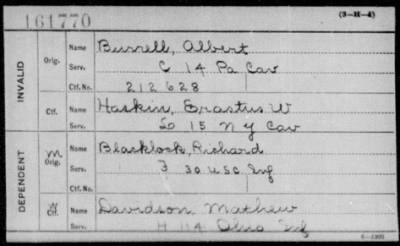 161770 (3-H-4)
INVALID
Orig. Name Burrell, Albert
Serv. C 14 Pa Cav
Ctf. No. 212628
Ctf. Name Haskin, Erastus W
Serv. 15 N Y Cav
DEPENDENT
M Orig. Name Blacklock, Richard
Serv. 30 U.S.C. Inf
Ctf. No.
W Ctf. Name Davidson Mathew
Serv. H 114 Ohio Inf